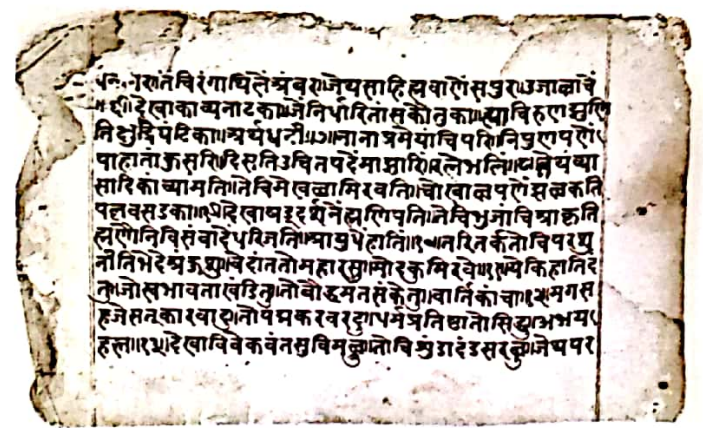 तेंचि रंगाथिलें अंबर॥जेथ साहित्य वाणें सपुर॥उजाळाचें
॥६॥देखा काव्य नाटका॥जे निर्धारितां सकौतुका॥त्याचि रुणझुणि
ति क्षुद्रघंटिका॥अर्थध्वनी॥७॥नाना प्रमेयांचि परि॥निपुणपणें
पाहातां कुसरि॥दिसति उचित पदें माझारि॥रत्ने भलि॥८॥तेथ व्या
सादिकांच्या मति॥तेचि मेखळा मिरवति॥चोखाळपणें झळकति
पलवसडका॥९॥देखा षड्दर्शनें ह्मणिपति॥तेचि भुजांचि आकृति
ह्मणौनि विसंवादे धरिजति॥आयुधें हाति॥१०॥तरि तर्क तोचि परशु
नीतिभेद अंकुशु॥वेदांत तो महारसु॥मोदकु मिरवे॥११॥येकि हाति दं
तु॥जो स्वभावता खंडितु॥तो बौद्धमतसंकेतु॥वार्तिकांचा॥१२॥मग स
हजे सत्कारवादु॥तो पद्मकर वरदु॥धर्मप्रतिष्ठा तो सिद्धु॥अभय
हस्त॥१३॥देखा विवेकवंत सुविमळु॥तोचि शुंडादंड सरळु॥जेथ पर